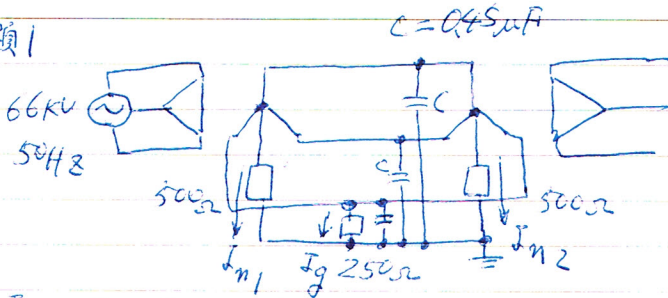 題1
C=0.45μF
66KV
50HZ
C
C
500Ω
500Ω
In1
Ig
250Ω
In2